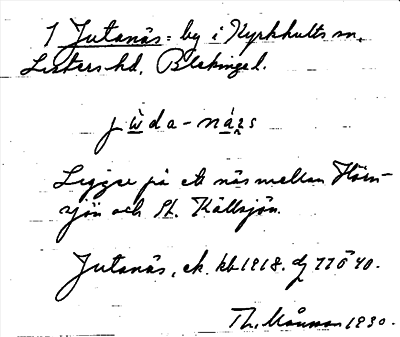 1 Jutanäs = by i Kyrkhults sn,
Listers hd, Blekinge l.
jẁda-náꝛs
Ligger på ett näs mellan Halen-
sjön och St. Källsjön.
Jutanäs, ek. kb. 1918. dj 77ö40.
Th. Månsson 1930.